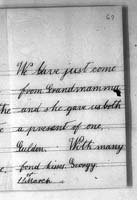 69
We have just come
from Grandmamma
the and she gave us both
e a present of one
Gulden. With many
e, fond kisses, Georgy
11 March